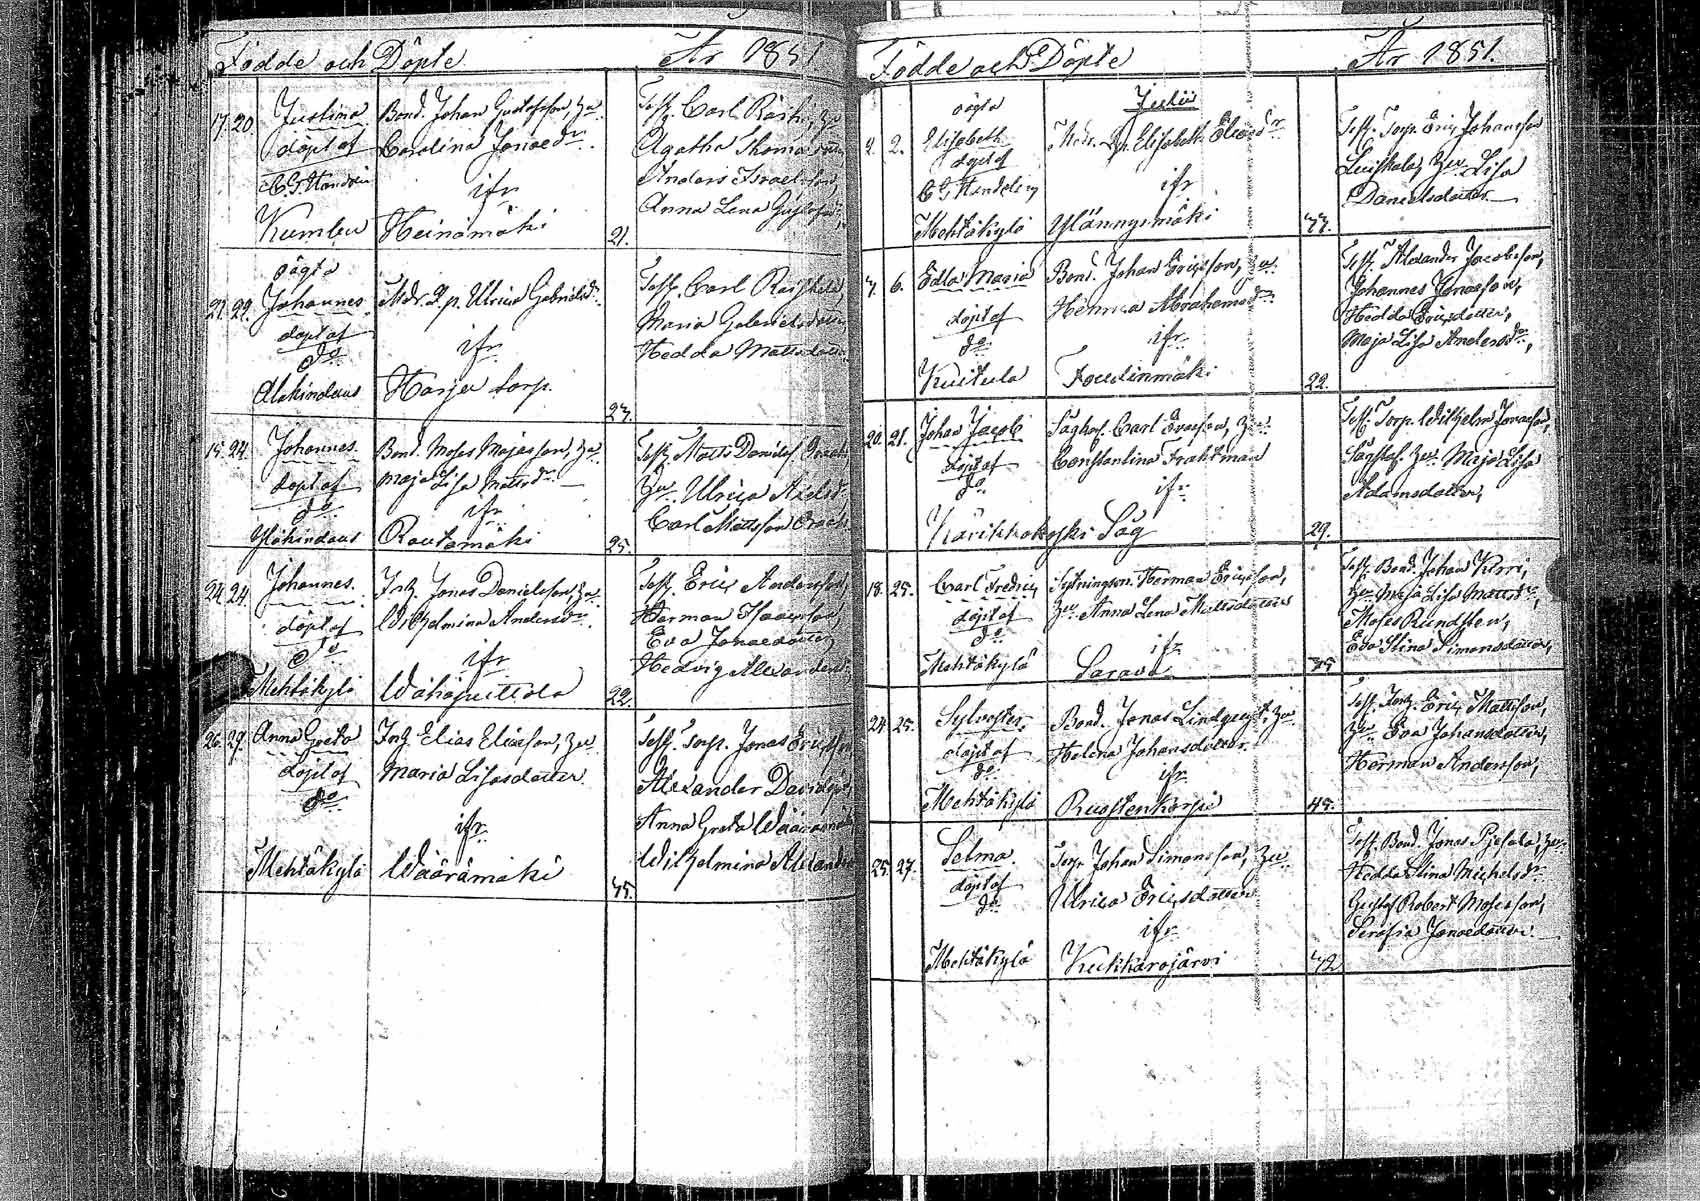 Födde och Döpte År 1851.
17. 20. Justina Bond. Johan Gustafsson, Hu
döpt af Carolina Jonaedr.
C G Handelin ifr
Kumbu Heinämäki 21.
Test. Carl
Agatha Thomasdotter
Anders Israelsson,
Anna Lena
oägta
21. 22. Johannes Ulrica Gabrielsdr.
döpt af ifr
do
Alahindaus Harju torp. 23.
Test. Carl
Maria Gabrielsdotter
Hedda Mattsdotter
15. 24. Johannes Bond. Moses Majasson, Hu
döpt af Maja Lisa Mattsdr
do ifr
Ylihindaus Rautamäki 25.
Test. Matts Danielss
Hu. Ulrica Axelsdr
Carl Mattsson
24. 24. Johannes. Inh. Jonas Danielsson, Hu
döpt af Wilhelmina Andersdr.
do ifr
Mehtäkylä Wähäpuittola 22.
Test. Eric Andersson,
Herman Isaacsson,
Eva Jonaedotter,
Hedvig Alexandersdr
26. 29. Anna Greta Inh. Elias Eliasson, Hu
döpt af Maria Lisasdotter
do ifr
Mehtäkylä Wäärämäki 45.
Test. Torp. Jonas Ericsson
Alexander Davidss
Anna Greta Wäärämäki
Wilhelmina Alexandersdr
Födde och Döpte År 1851.
Julii
oägta
2. 2. Elisabeth Elisabeth Eliaedr
döpt af
C G Handelin ifr
Mehtäkylä Ylännysmäki
Test. Torp. Eric Johansson
Hu Lisa
Danielsdotter
4. 6. Edla Maria Bond. Johan Ericsson, Hu
döpt af Henrica Abrahamsdr
do ifr
Kuitula Foudinmäki 22.
Test. Alexander Jacobsson,
Johannes Jonaeson,
Hedda Ericsdotter,
Maja Lisa Andersdr,
20. 21. Johan Jacob Carl Hu
döpt af Constantina Frahtman
do ifr
Kärikkakoski Såg 29.
Test. Torp. Wilhelm Jonaeson,
Hu Maja Lisa
Adamsdotter,
18. 25. Carl Fredric Herman Ericsson,
döpt af Hu Anna Lena Mattsdotter
do ifr
Mehtäkylä Sarava
Test. Bond. Johan Korri,
Hu Maja Lisa Mattsdr,
Moses Rundsten,
Eva Stina Simonsdotter,
24. 25. Sylvester Bond. Jonas Lindqvist, Hu
döpt af Helena Johansdotter
do ifr
Mehtäkylä Ruostenkorpi 45.
Test. Inh. Eric Mattsson,
Hu Eva Johansdotter,
Herman Andersson,
25. 27. Selma. Torp. Johan Simonsson, Hu
döpt af Ulrica Ericsdotter
do ifr
Mehtäkylä Kukkarojärvi 42
Test. Bond. Jonas Hu
Hedda Stina Michelsdr
Gustaf Robert Mosesson,
Serafia Jonaedotter.